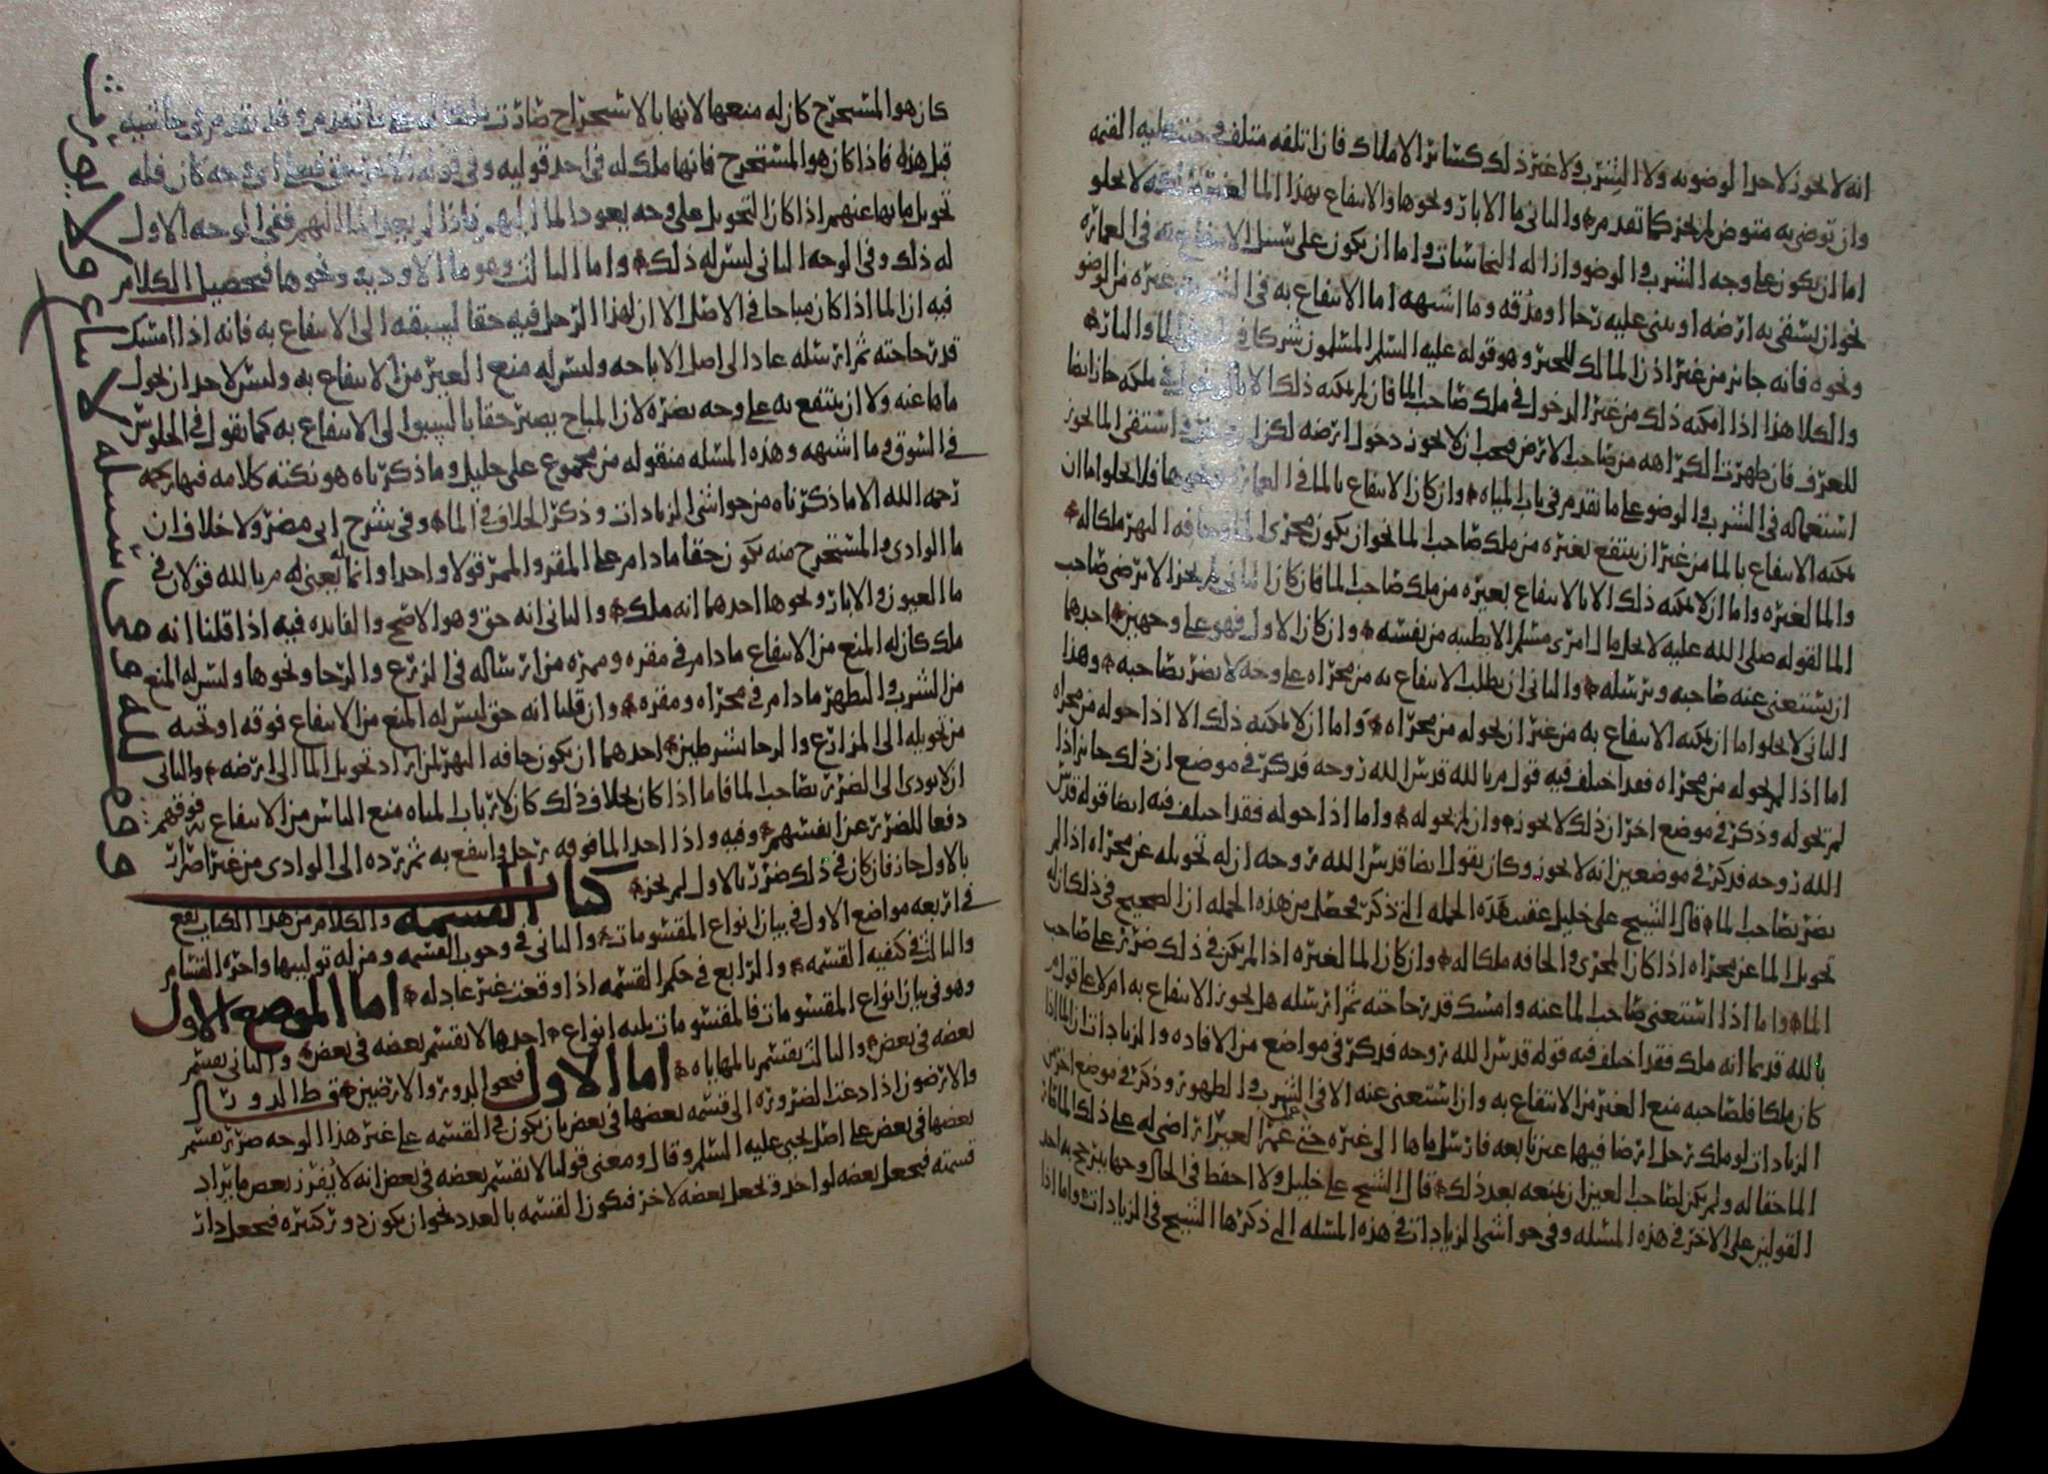 انه لا يجوز لاحد الوضو به ولا الشرب ولا غير ذلك كسائر الاملاك فان اتلفه متلف عليه القيمه
وان توضى به متوض لم يجز كما تقدم والثاني ما الابار ونحوها والانتفاع بهذا الما لا يخلو
اما ان يكون على وجه الشرب والوضو واذاله النجاسات واما ان يكون على سبيل الانتفاع به في العماره
نحو ان يسقى به ارضه او يبني عليه رحا او مدقه وما اشبهه اما الانتفاع به في الشرب وغيره من الوضو
ونحوه فانه جائز من غير اذن المالك للخبر وهو قوله عليه السلم المسلمون شركا في الما والنار
والكلا هذا اذا امكنه ذلك من غير الدخول في ملك صاحب الما فان لم يمكنه ذلك الا بالدخول في ملكه جاز ايضا
للعرف فان ظهرت الكراهه من صاحب الارض فيجب ان لا يجوز دخول ارضه لكن واستقى الما يجوز
استعماله في الشرب والوضو على ما تقدم في باب المياه وان كان الانتفاع بالما في العماره ونحوها فلا يخلو اما ان
يمكنه الانتفاع بالما من غير ان ينتفع بغيره من ملك صاحب الما نحو ان يكون مجرى الما وحافه النهر ملكا له
والما لغيره واما ان لا يمكنه ذلك الا بالانتفاع بغيره من ملك صاحب الما فان كان الثاني لم يجز الا برضى صاحب
الما لقوله صلى الله عليه لا يحل مال امرى مسلم الا بطيبه من نفسه وان كان الاول فهو على وجهين احدهما
ان يستغنى عنه صاحبه ويرسله والثاني ان يطلب الانتفاع به من مجراه على وجه لا يضر بصاحبه وهذا
الثاني لا يخلو اما ان يمكنه الانتفاع به من غير ان يحوله من مجراه واما ان لا يمكنه ذلك الا اذا حوله من مجراه
اما اذا لم يحوله من مجراه فقد اختلف فيه قول م بالله قدس الله روحه فذكر في موضع ان ذلك جائز اذا
لم يحوله وذكر في موضع اخر ان ذلك لا يجوز وان لم يحوله واما اذا حوله فقد اختلف فيه ايضا قوله قدس
الله روحه فذكر في موضعين انه لا يجوز وكان يقول ايضا قدس الله روحه ان له تحويله عن مجراه اذا لم
يضر بصاحب الما قال الشيخ علي خليل عقيب هذه الجمله التي ذكر محصل من هذه الجمله ان الصحيح في ذلك ان له
تحويل الما عن مجراه اذا كان المجرى والحافه ملكا له وان كان الما لغيره اذا لم يكن في ذلك ضرر على صاحب
الما واما اذا استغنى صاحب الما عنه وامسك قدر حاجته ثم ارسله هل يجوز الانتفاع به ام لا على قول م
بالله قد بينا انه ملك فقد اختلف فيه قوله قدس الله روحه فذكر في مواضع من الافاده والزيادات ان الما اذا
كان ملكا فلصاحبه منع الغير من الانتفاع به وان استغنى عنه الا في الشرب والطهور وذكر في موضع اخر من
الزيادات لو ملك رجل ارضا فيها عين نابعه فارسل ماها الى غيره حتى عمر الغير اراضي له على ذلك الما فان
الما حقا له ولم يكن لصاحب العين ان يمنعه بعد ذلك قال الشيخ علي خليل ولا احفظ في الحال وجها يترجح به احد
القولين على الاخر في هذه المسله وفي حواشي الزيادات في هذه المسله التي ذكرها الشيخ في الزيادات واما اذا
كان هو المستخرج كان له منعها لانها بالاستخراج صارت ملكا له على ما تقدم وقد تقدم في حاشيه
قبل هذه فاذا كان هو المستخرج فانها ملك له في احد قوليه وفي قوله الاخر حق فعلى اي وجه كان فله
تحويل مائها عنهم اذا كان التحويل على وجه يعود الما اليهم فاذا لم يعد الما اليهم ففي الوجه الاول
له ذلك وفي الوجه الثاني ليس له ذلك واما الثالث وهو ما الاوديه ونحوها فتحصيل الكلام
فيه ان الما اذا كان مباحا في الاصل الا ان لهذا الرجل فيه حقا لسبقه الى الانتفاع به فانه اذا امسك
قدر حاجته ثم ارسله عاد الى اصل الاباحه وليس له منع الغير من الانتفاع به وليس لاحد ان يحول
ماها عنه ولا ان ينتفع به على وجه يضره لان المباح يصير حقا بالسبق الى الانتفاع به كما نقول في الجلوس
في السوق وما اشبهه وهذه المسله منقوله من مجموع علي خليل وما ذكرناه هو نكته كلامه فيها
رحمه الله الا ما ذكرناه من حواشي الزيادات وذكر الخلاف في الما وفي شرح ابي مضر ولا خلاف ان
ما الوادي والمستخرج منه يكون حقا ما دام على المقر والممر قولا واحدا وانما يعني له م بالله قولان في
ما العيون والابار ونحوها احدهما انه ملك والثاني انه حق وهو الاصح والفايده فيه اذا قلنا انه
ملك كان له المنع من الانتفاع ما دام في مقره وممره من ارساله في الزرع والرحا ونحوها وليس له المنع
من الشرب والتطهر ما دام في مجراه ومقره وان قلنا انه حق ليس له المنع من الانتفاع فوقه او تحته
من تحويله الى المزارع والرحا بشرطين احدهما ان يكون حافه النهر لمن اراد تحويل الما الى ارضه والثاني
ان لا يودي الى الضرر بصاحب الما فاما اذا كان بخلاف ذلك كان لارباب المياه منع الناس من الانتفاع به فوقهم
دفعا للضرر عن انفسهم وفيه واذا اخذ الما فوقه رجل وانتفع به ثم رده الى الوادي من غير اضرار
بالاول جاز فان كان في ذلك ضرر بالاول لم يجز
كتاب القسمه والكلام من هذا الكتاب يقع
في اربعه مواضع الاول في بيان انواع المقسومات والثاني في وجوب القسمه ومن له توليتها واجره القسام
والثالث في كيفيه القسمه والرابع في حكم القسمه اذا وقعت غير عادله اما الموضع الاول
وهو في بيان انواع المقسومات فالمقسومات ثلثه انواع احدها لا يقسم بعضه في بعض والثاني يقسم
بعضه في بعض والثالث يقسم بالمهاياه اما الاول فنحو الدور والارضين قط الدور
والارضون اذا دعت الضروره الى قسمه بعضها في بعض بان يكون في القسمه على غير هذا الوجه ضرر يقسم
بعضها في بعض على اصل يحيى عليه السلم وقال ومعنى قولنا لا يقسم بعضه في بعض انه لا يفرز بعض ما يراد
قسمته فيجعل بعضه لواحد ويجعل بعضه لاخر فتكون القسمه بالعدد نحو ان يكون دور كثيره فيجعل دار